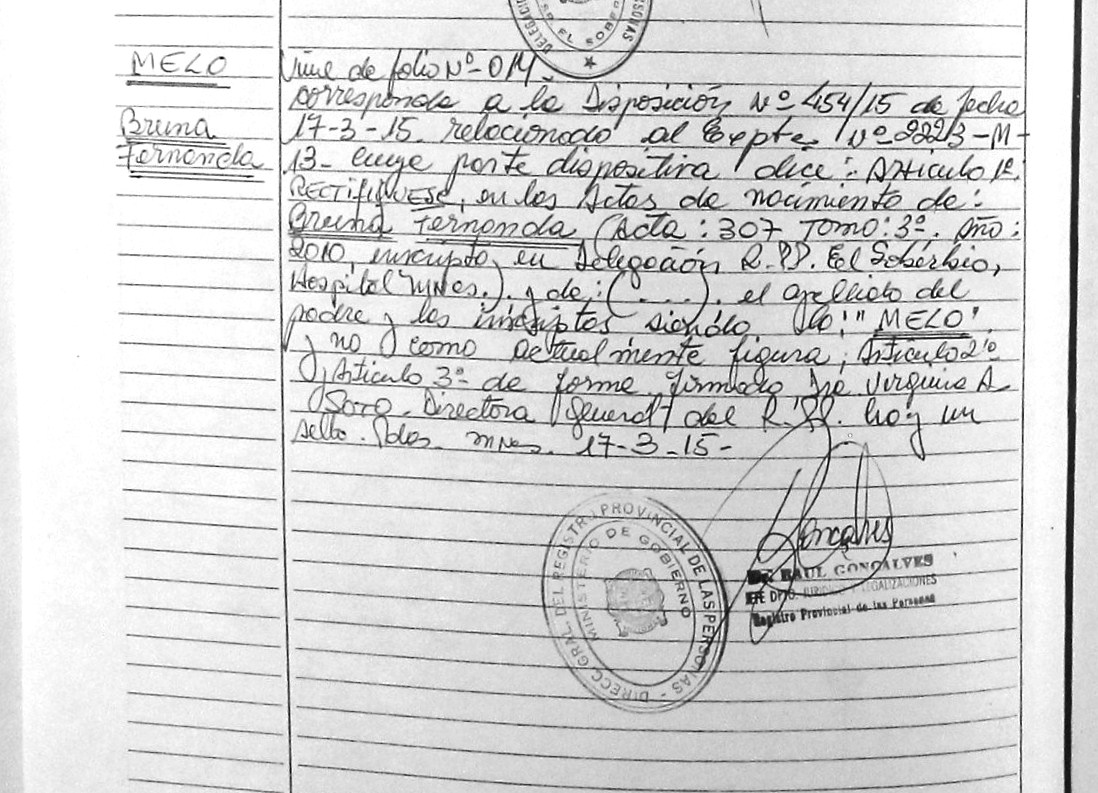 DELEGACI
EL SOBER
SONAS
MELO
Bruna
Fernanda
Viene de folio Nº 014.
corresponde a la Disposición Nº 454/15 de fecha
17-3-15 relacionado al Expte. Nº 2223-M-
13- cuya parte dispositiva dice: Articulo 1º:
RECTIFIQUESE, en las Actas de nacimiento de:
Bruna Fernanda (Acta: 307 Tomo: 3º. Año:
2010, inscripta, en Delegación R.PP. El Soberbio,
Hospital Mnes.). y de: (....). el apellido del
padre y los inscriptos siendolo "MELO"
y no como actualmente figura; Articulo 2º
y Articulo 3º de forma firmado Virginia A
Soto. Directora General del R.PP. hay un
sello. Pdas. mnes. 17-3-15-
Goncalves
DIRECC GRAL. DEL REGISTRO PROVINCIAL DE LAS PERSONAS -
MINISTERIO DE GOBIERNO
Dr. RAUL GONCALVES
JEFE DPTO. JURIDICO Y LEGALIZACIONES
Registro Provincial de las Personas